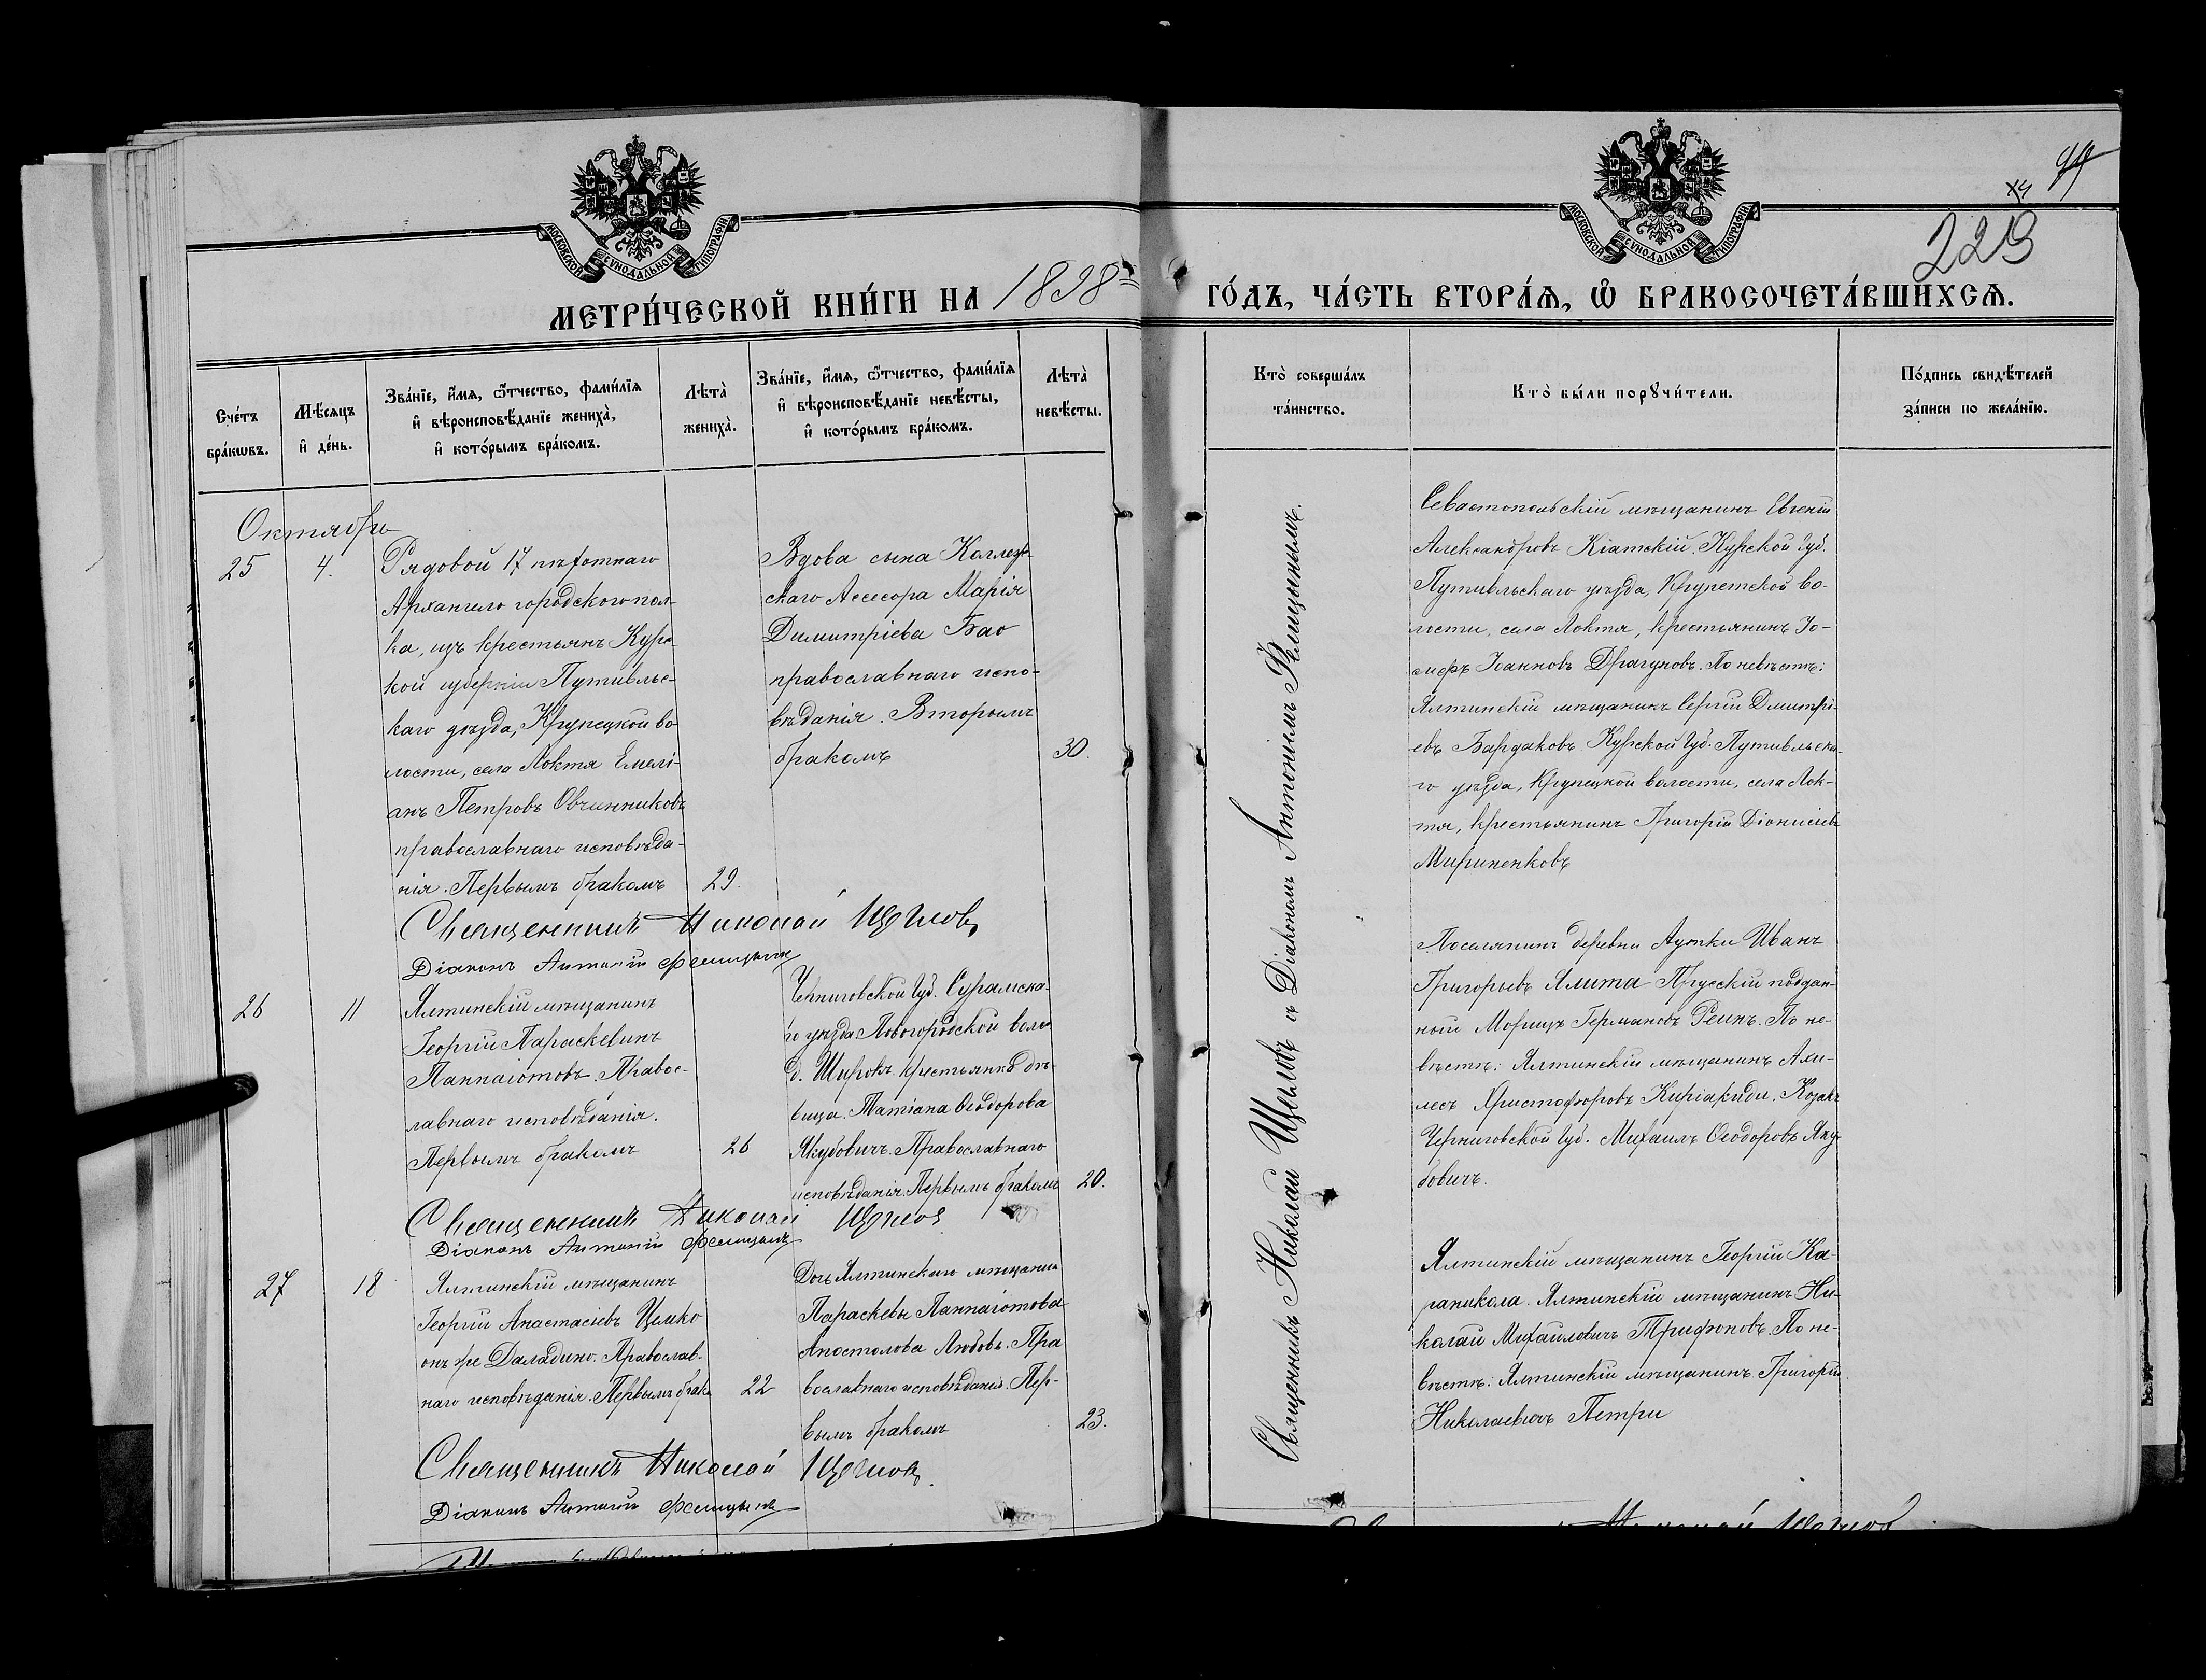 МОСКОВСКОЙ СѴНОДАЛЬНОЙ ТИПОГРАФІИ
МЕТРИ́ЧЕСКОЙ КНИ́ГИ НА 1898
Сче́тъ бра́кѡвъ.
Мѣ́сяцъ и҆ де́нь.
Зва́нїе, и҆́мя, ѻ҆́тчество, фами́лїя
и҆ вѣроисповѣ́данїе жениха̀,
и҆ кото́рымъ бра́комъ.
Лѣта̀ жениха̀.
Зва́нїе, и҆́мя, ѻ҆́тчество, фами́лїя
и҆ вѣроисповѣ́данїе невѣ́сты,
и҆ кото́рымъ бра́комъ.
Лѣта̀ невѣ́сты.
Октябрь
25
4.
Рядовой 17 пѣхотнаго
Архангело городского пол-
ка, изъ крестьянъ Курс-
кой губерніи Путивльс-
каго уѣзда, Крупецкой во-
лости, села Локтя Емелі-
анъ Петровъ Овчинниковъ
православнаго исповѣда-
нія. Первымъ бракомъ
29.
Вдова сына Коллеж-
скаго Ассесора Марія
Димитріева Бао
православнаго испо-
вѣданія. Вторымъ
бракомъ
30.
Священникъ Николай Щегловъ
Діаконъ Антоній
26
11
Ялтинскій мѣщанинъ
Георгій Параскевинъ
Паппаіотовъ. Правос-
лавнаго исповѣданія.
Первымъ бракомъ
26
Черниговской Губ. Суражска-
го уѣзда Новогородской воло
д. крестьянка дѣ-
вица. Татіана Ѳеодорова
Якубовичъ. Православнаго
исповѣданія. Первымъ бракомъ
20.
Священникъ Николай Щегловъ
Діаконъ Антоній
27
18
Ялтинскій мѣщанинъ
Георгій Анастасіевъ
Православ-
наго исповѣданія. Первымъ брак
22
Дочь Ялтинскаго мѣщанина
Параскевы Паппаіотова
Апостолова Любовь. Пра
вославнаго исповѣданія. Пер-
вымъ бракомъ
23.
Священникъ Николай Щегловъ
Діаконъ Антоній
229
МОСКОВСКОЙ СѴНОДАЛЬНОЙ ТИПОГРАФІИ
ГО́ДЪ, ЧА́СТЬ ВТОРА́Я, Ѡ҆ БРАКОСОЧЕТА́ВШИХСЯ.
Кто̀ соверша́лъ
та́инство.
Кто̀ бы́ли порꙋчи́тели.
По́дпись свидѣ́телей
за́писи по жела́нїю.
Священникъ Николай Щегловъ съ Діакономъ Антоніемъ
Севастопольскій мѣщанинъ Евгеній
Александровъ Кіатскій. Курской Губ.
Путивльскаго уѣзда, Крупетской во-
лости, села Локтя, крестьянинъ Іо-
сифъ Іоанновъ Драгуновъ. По невѣстѣ:
Ялтинскій мѣщанинъ Сергій Дмитрі-
евъ Бардаковъ Курской Губ. Путивльска-
го уѣзда, Крупецкой волости, села Лок-
тя, крестьянинъ Григорій Діонисіевъ
Мириненковъ
Поселянинъ деревни Аутки Иванъ
Григорьевъ Ялита Прусскій поддан-
ный Морицъ Германовъ Реинъ. По не-
вѣстѣ: Ялтинскій мѣщанинъ Ахи-
лесъ Христофоровъ Киріакиди. Козакъ
Черниговской Губ. Михаилъ Ѳеодоровъ Яку-
бовичъ.
Ялтинскій мѣщанинъ Георгій Ка-
раникола. Ялтинскій мѣщанинъ Ни-
колай Михаиловичъ Трифоновъ. По не-
вѣстѣ: Ялтинскій мѣщанинъ. Григорій
Николаевичъ Петри